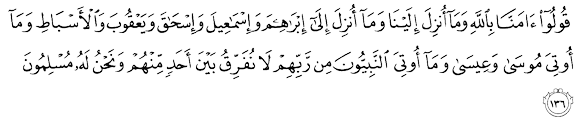 قُولُوٓا۟ ءَامَنَّا بِٱللَّهِ وَمَآ أُنزِلَ إِلَيْنَا وَمَآ أُنزِلَ إِلَىٰٓ إِبْرَٰهِـۧمَ وَإِسْمَـٰعِيلَ وَإِسْحَـٰقَ وَيَعْقُوبَ وَٱلْأَسْبَاطِ وَمَآ
أُوتِىَ مُوسَىٰ وَعِيسَىٰ وَمَآ أُوتِىَ ٱلنَّبِيُّونَ مِن رَّبِّهِمْ لَا نُفَرِّقُ بَيْنَ أَحَدٍ مِّنْهُمْ وَنَحْنُ لَهُۥ مُسْلِمُونَ
١٣٦